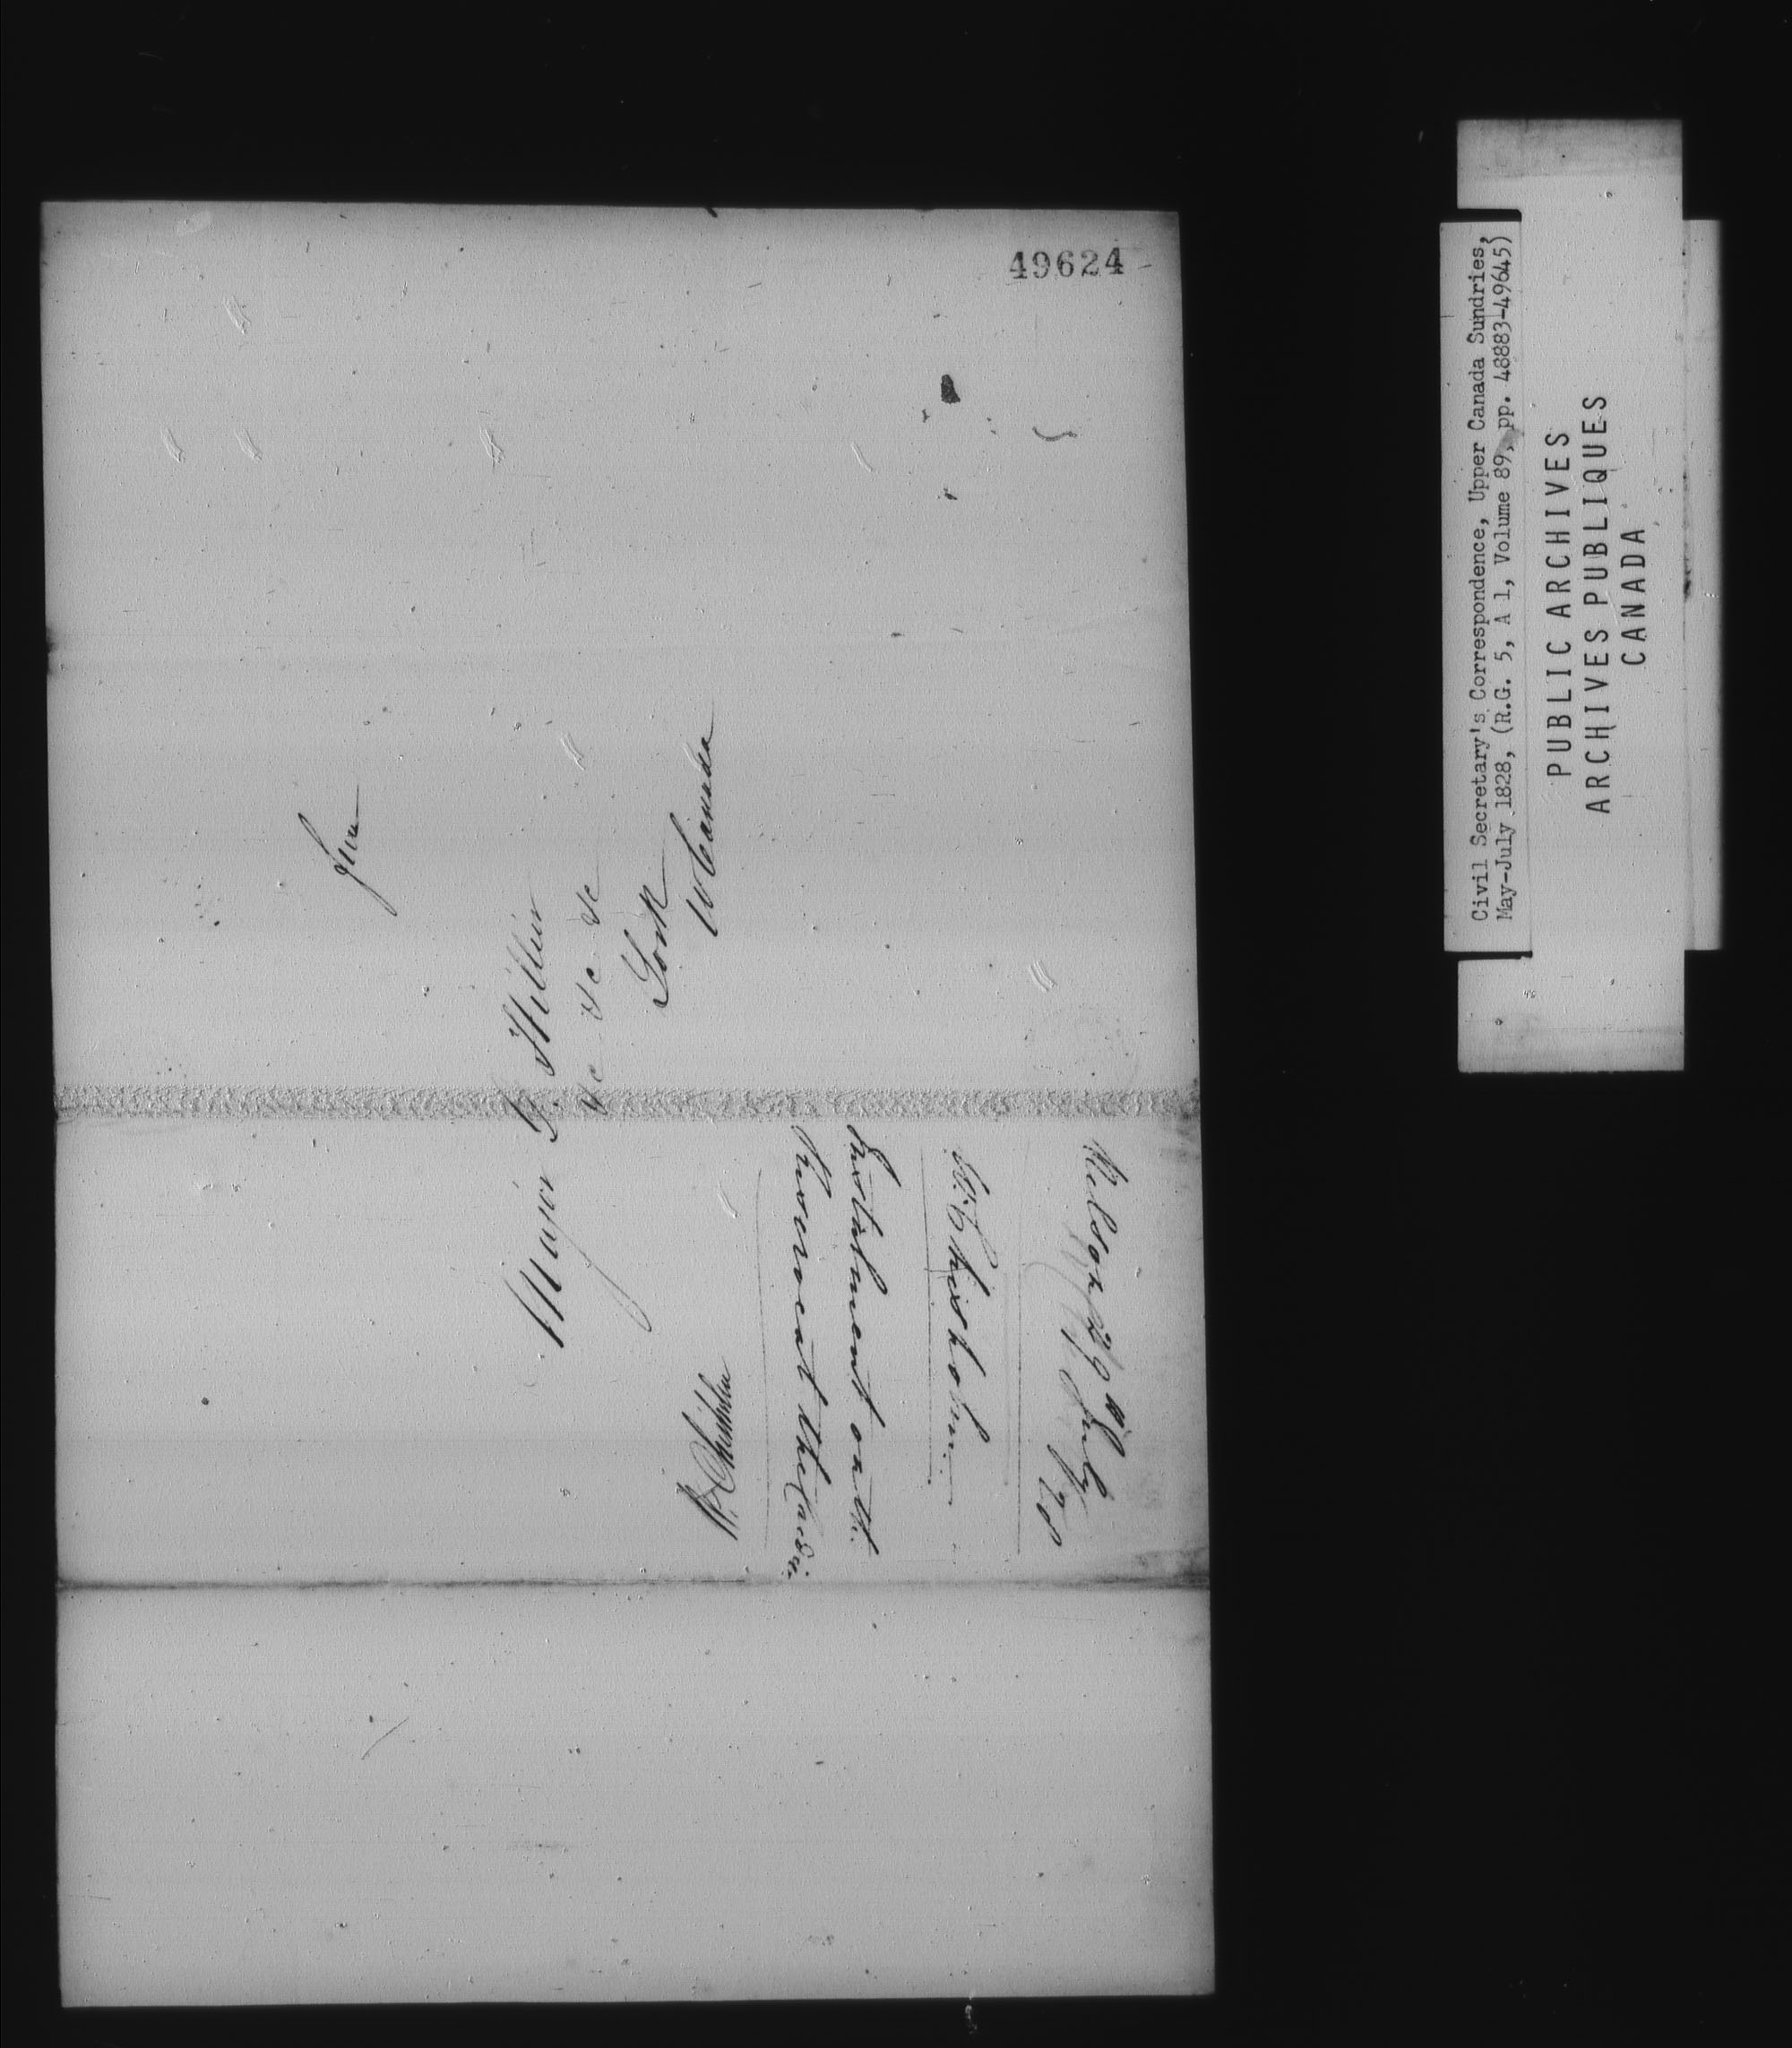 49624
free
Major G. Hillier
&c &c &c
York
U Canada
W. Chisholm
Nelson 29 July
28
W. Chisholm
Instalment on the
Burlington Canal
Civil Secretary's Correspondence, Upper Canada Sundries,
May-July 1828, (R.G. 5, A 1, Volume 89, pp. 48883-49645)
PUBLIC ARCHIVES
ARCHIVES PUBLIQUES
CANADA